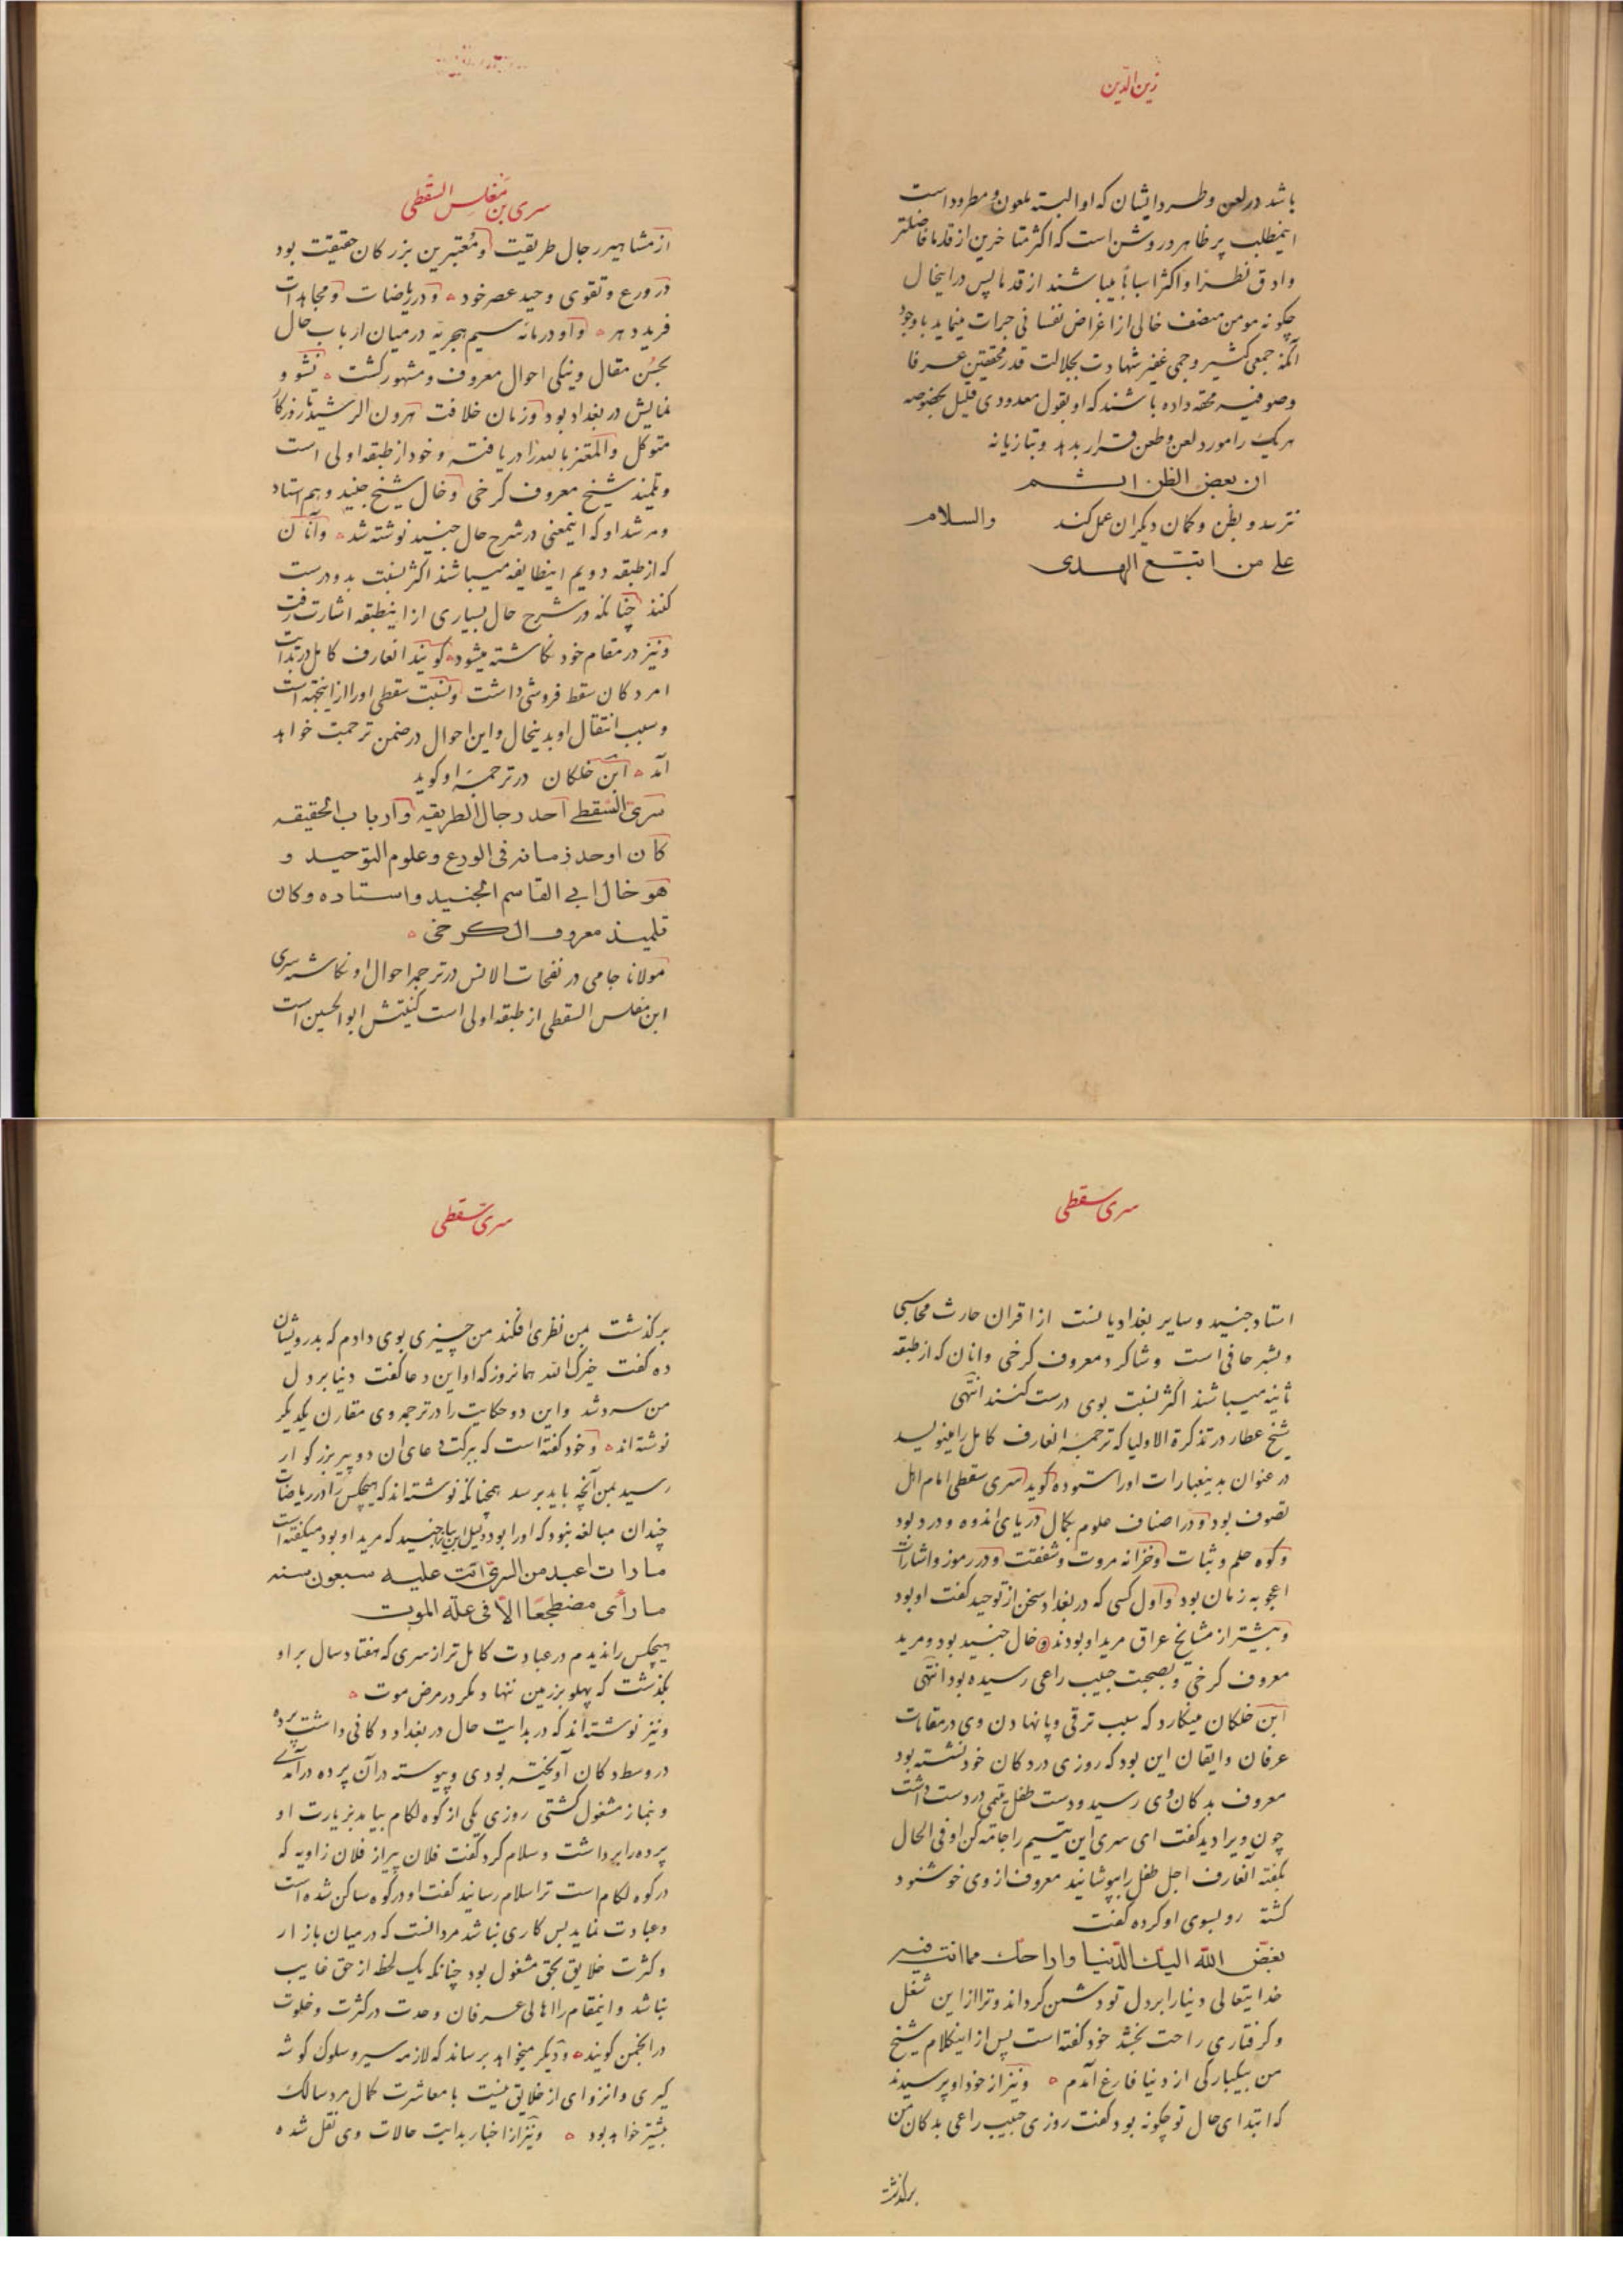 زین الدین
باشد در لعن و طرد ایشان که او البته ملعون و مطرود است
اینمطلب پر ظاهر و روشن است که اکثر متاخرین از قدما فاضلتر
وادق نظرا و اکثر اسبابا میباشند از قدما پس در اینحال
چکونه مومن منصف خالی از اغراض نفسانی جرات مینماید با وجود
آنکه جمعی کثیر و جمی غفیر شهادت بجلالت قدر محققین عرفا
وصوفیه محقه داده باشند که او بقول معدودی قلیل بخصوصه
هریک را مورد لعن و طعن قرار بدهد و بتازیانه
ان بعض الظن اثم
نترسد و بظن و کمان دیکران عمل کند والسلام
علی من اتبع الهدی
سری بن مغلس السقطی
از مشاهیر رجال طریقت و معتبرین بزرکان حقیقت بود
در ورع و تقوی وحید عصر خود و در ریاضات و مجاهدات
فرید دهر و او در مائه سیم هجریه در میان ارباب حال
بحسن مقال و نیکی احوال معروف و مشهور کشت نشو و
نمایش در بغداد بود و زمان خلافت هرون الرشید تا روزکار
متوکل والمعتز بالله را دریافته و خود از طبقه اولی است
و تلمیذ شیخ معروف کرخی و خال شیخ جنید و هم استاد
و مرشد او که اینمعنی در شرح حال جنید نوشته شد و آنان
که از طبقه دویم اینطایفه میباشند اکثر نسبت بدو درست
کنند چنانکه در شرح حال بسیاری از اینطبقه اشارت رفت
و نیز در مقام خود نکاشته میشود کویند انعارف کامل در بدایت
امر دکان سقط فروشی داشت و نسبت سقطی او را از اینجهة است
و سبب انتقال او بدینحال و این احوال در ضمن ترجمت خواهد
آمد ابن خلکان در ترجمهٔ او کوید
سری السقطی احد رجال الطریقه و ارباب الحقیقه
کان اوحد زمانه فی الورع و علوم التوحید و
هو خال ابی القاسم الجنید واستاده وکان
تلمیذ معروف الکرخی
مولانا جامی در نفحات الانس در ترجمه احوال او نکاشته سری
ابن مغلس السقطی از طبقه اولی است کنیتش ابوالحسین است
سری سقطی
استاد جنید و سایر بغدادیانست از اقران حارث محاسبی
و بشر حافی است و شاکرد معروف کرخی و انان که از طبقه
ثانیه میباشند اکثر نسبت بوی درست کنند انتهی
شیخ عطار در تذکرة الاولیا که ترجمهٔ انعارف کامل را مینویسد
در عنوان بدینعبارات او را ستوده کوید سری سقطی امام اهل
تصوف بود و در اصناف علوم بکمال دریای اندوه و درد بود
و کوه حلم و ثبات و خزانه مروت و شفقت و در رموز و اشارات
اعجوبه زمان بود و اول کسی که در بغداد سخن از توحید کفت او بود
و بیشتر از مشایخ عراق مرید او بودند و خال جنید بود و مرید
معروف کرخی و بصحبت حبیب راعی رسیده بود انتهی
ابن خلکان مینکارد که سبب ترقی و پا نهادن وی در مقامات
عرفان و ایقان این بود که روزی در دکان خود نشسته بود
معروف بدکان وی رسید و دست طفل یتیمی در دست داشت
چون ویرا دید کفت ای سری این یتیم را جامه کن او فی الحال
بکفته انعارف اجل طفل را بپوشانید معروف از وی خوشنود
کشته رو بسوی او کرده کفت
بغض الله الیک الدنیا واراحک مما انت فیه
خدایتعالی دنیا را بر دل تو دشمن کرداند و ترا از این شغل
و کرفتاری راحت بخشد خود کفته است پس از اینکلام شیخ
من بیکبارکی از دنیا فارغ آمدم و نیز از خود او پرسیدند
که ابتدای حال تو چکونه بود کفت روزی حبیب راعی بدکان من
برکذشت
سری سقطی
برکذشت بمن نظری افکند من چیزی بوی دادم که بدرویشان
ده کفت خیرک الله همانروز که او این دعا کفت دنیا بر دل
من سرد شد و این دو حکایت را در ترجمه وی مقارن یکدیکر
نوشته اند و خود کفته است که ببرکت دعای ان دو پیر بزرکوار
رسید بمن آنچه باید برسد همچنانکه نوشته اند که هیچکس را در ریاضات
چندان مبالغه نبود که او را بود و دلیل این بیان جنید که مرید او بود میکفته است
ما رات اعبد من السری اتت علیه سبعون سنه
ما رأی مضطجعا الا فی علة الموت
هیچکس را ندیدم در عبادت کامل تر از سری که هفتاد سال بر او
بکذشت که پهلو بر زمین ننهاد مکر در مرض موت
و نیز نوشته اند که در بدایت حال در بغداد دکانی داشت پرده
در وسط دکان آویخته بودی و پیوسته در آن پرده درآمدی
و بنماز مشغول کشتی روزی یکی از کوه لکام بیامد بزیارت او
پرده را برداشت و سلام کرد کفت فلان پیر از فلان زاویه که
در کوه لکام است ترا سلام رسانید کفت او در کوه ساکن شده است
و عبادت نماید بس کاری نباشد مرد انست که در میان بازار
و کثرت خلایق بحق مشغول بود چنانکه یک لحظه از حق غایب
نباشد و اینمقام را اهالی عرفان وحدت در کثرت و خلوت
در انجمن کویند و دیکر میخواهد برساند که لازمه سیر و سلوک کوشه
کیری و انزوای از خلایق نیست با معاشرت کمال مرد سالک
بیشتر خواهد بود و نیز از اخبار بدایت حالات وی نقل شده